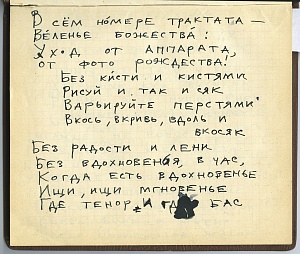 В сём но́мере трактата —
Веленье божества́:
Уход от аппарата,
от фото рождества!
Без кисти и кистями
Рисуй и так и сяк
Варьируйте перстями
Вкось, вкривь, вдоль и
вкосяк
Без радости и лени
Без вдохновенья, в час,
Когда есть вдохновенье
Ищи, ищи мгновенье
Где тенор, и где бас